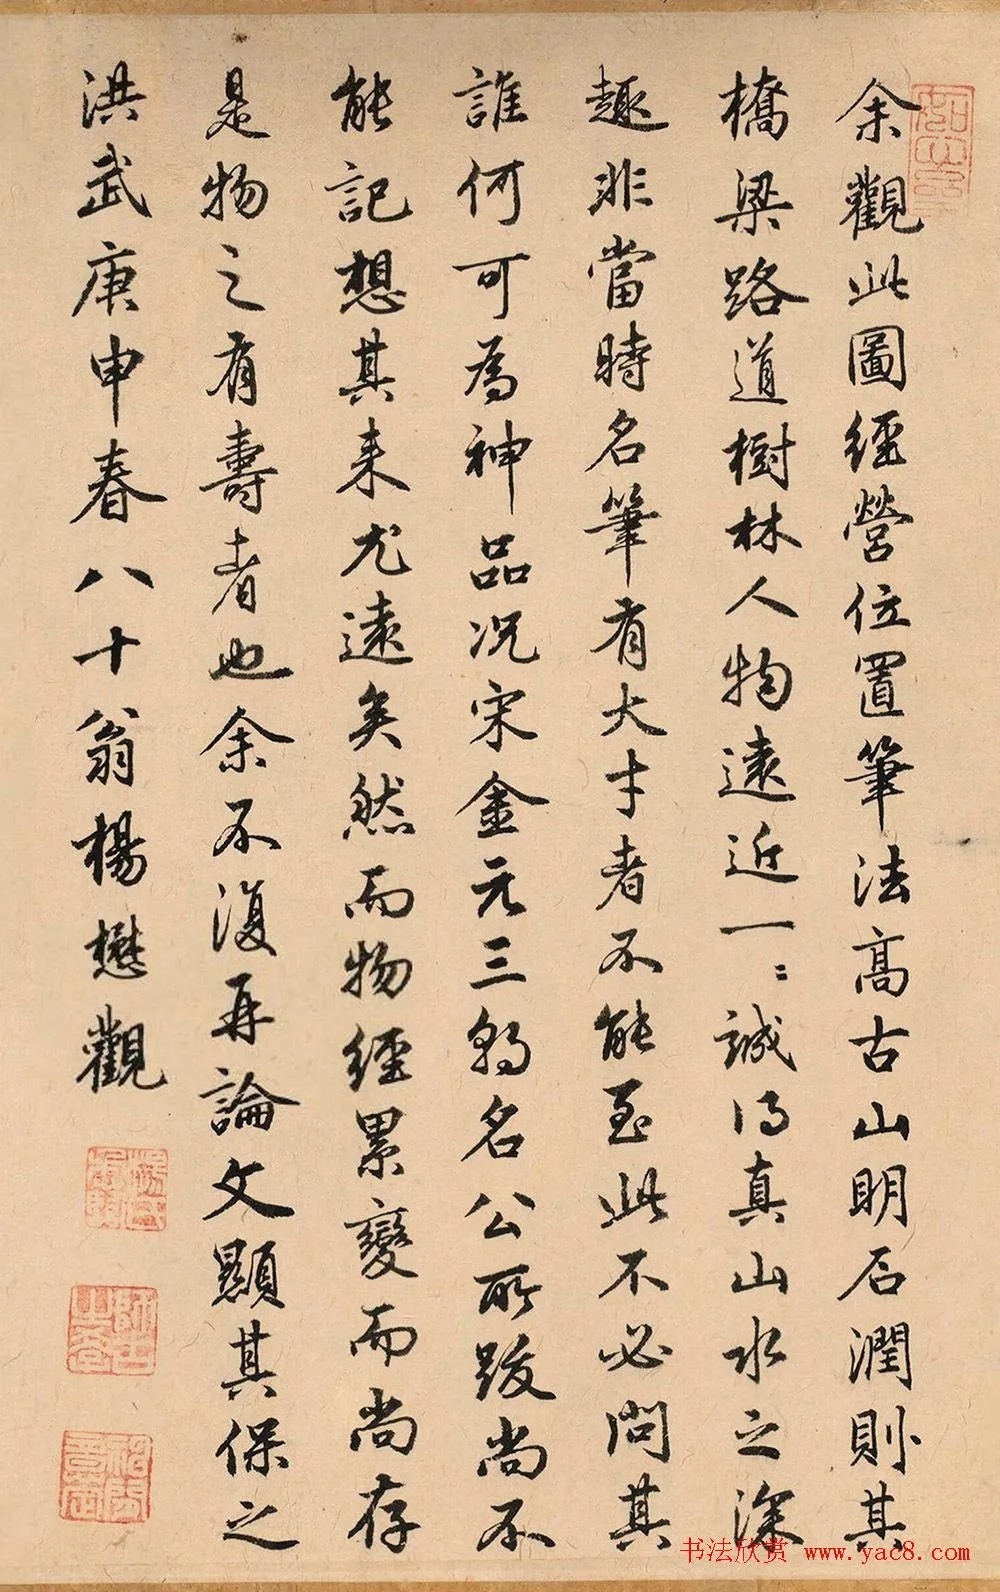 余觀此圖經營位置筆法高古山明石潤則其
橋梁路道樹林人物遠近一〻誠得真山水之深
趣非當時名筆有大才者不能至此不必問其
誰何可為神品況宋金元三朝名公所跋尚不
能記想其来尤遠矣然而物經累變而尚存
是物之有壽者也余不復再論文顯其保之
洪武庚申春八十翁楊懋觀
书法欣赏 www.yac8.com